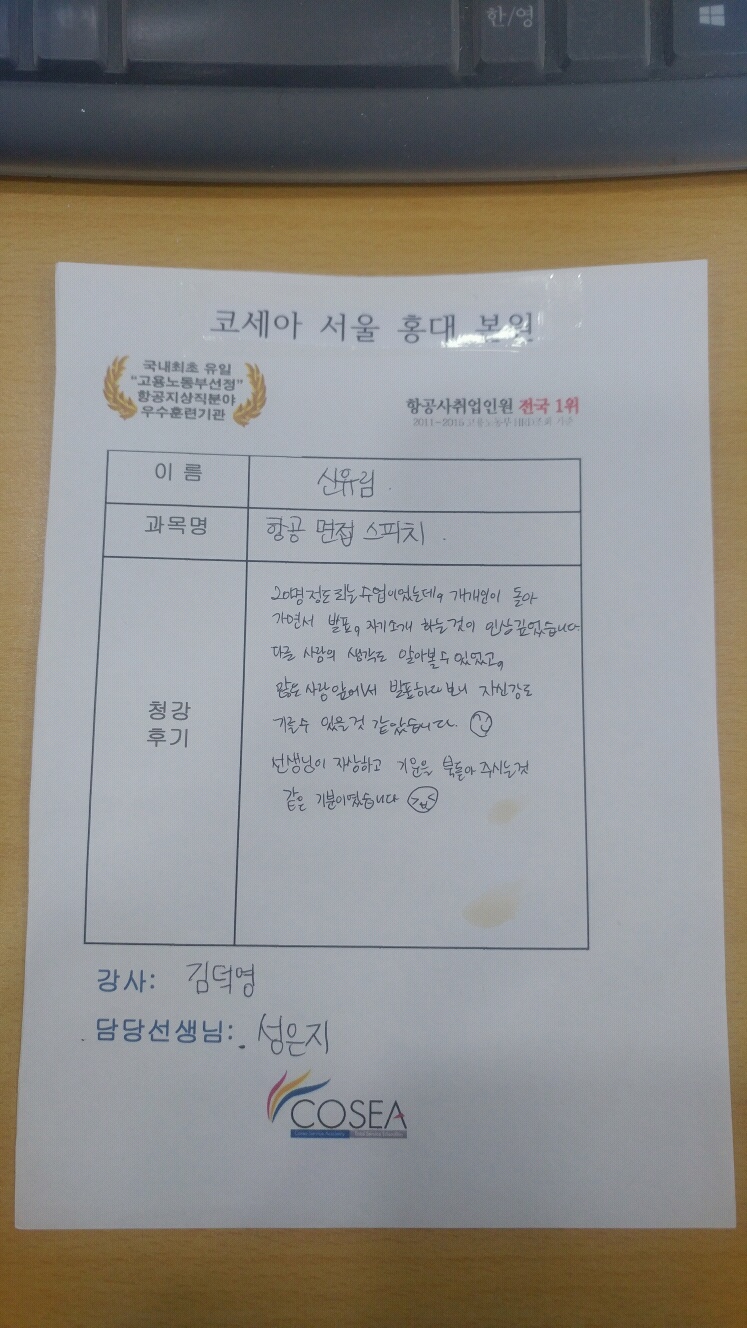 한/영
코세아 서울 홍대 본원
국내최초 유일
"고용노동부선정"
항공지상직분야
우수훈련기관
항공사취업인원 전국 1위
2011-2015 고용노동부 HRD조회 기준
이 름
신유림.
과목명
항공 면접 스피치.
청강
후기
20명정도 되는 수업이었는데, 개개인이 돌아
가면서 발표, 자기소개 하는것이 인상깊었습니다.
다른 사람의 생각도 알아볼 수 있었고,
많은 사람 앞에서 발표하다 보니 자신감도
기를수 있을것 같았습니다.
선생님이 자상하고 기운을 북돋아 주시는것
같은 기분이였습니다
강사: 김덕영
담당선생님: 성은지
COSEA